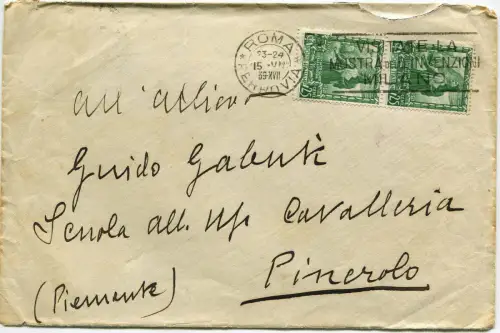 ROMA
23-24
15 · VII
FERROVIA
VISITATE LA
MOSTRA DELLE INVENZIONI
MILANO
all'allievo
Guido Gabuti
Scuola all. Uff. Cavalleria
Pinerolo
(Piemonte)